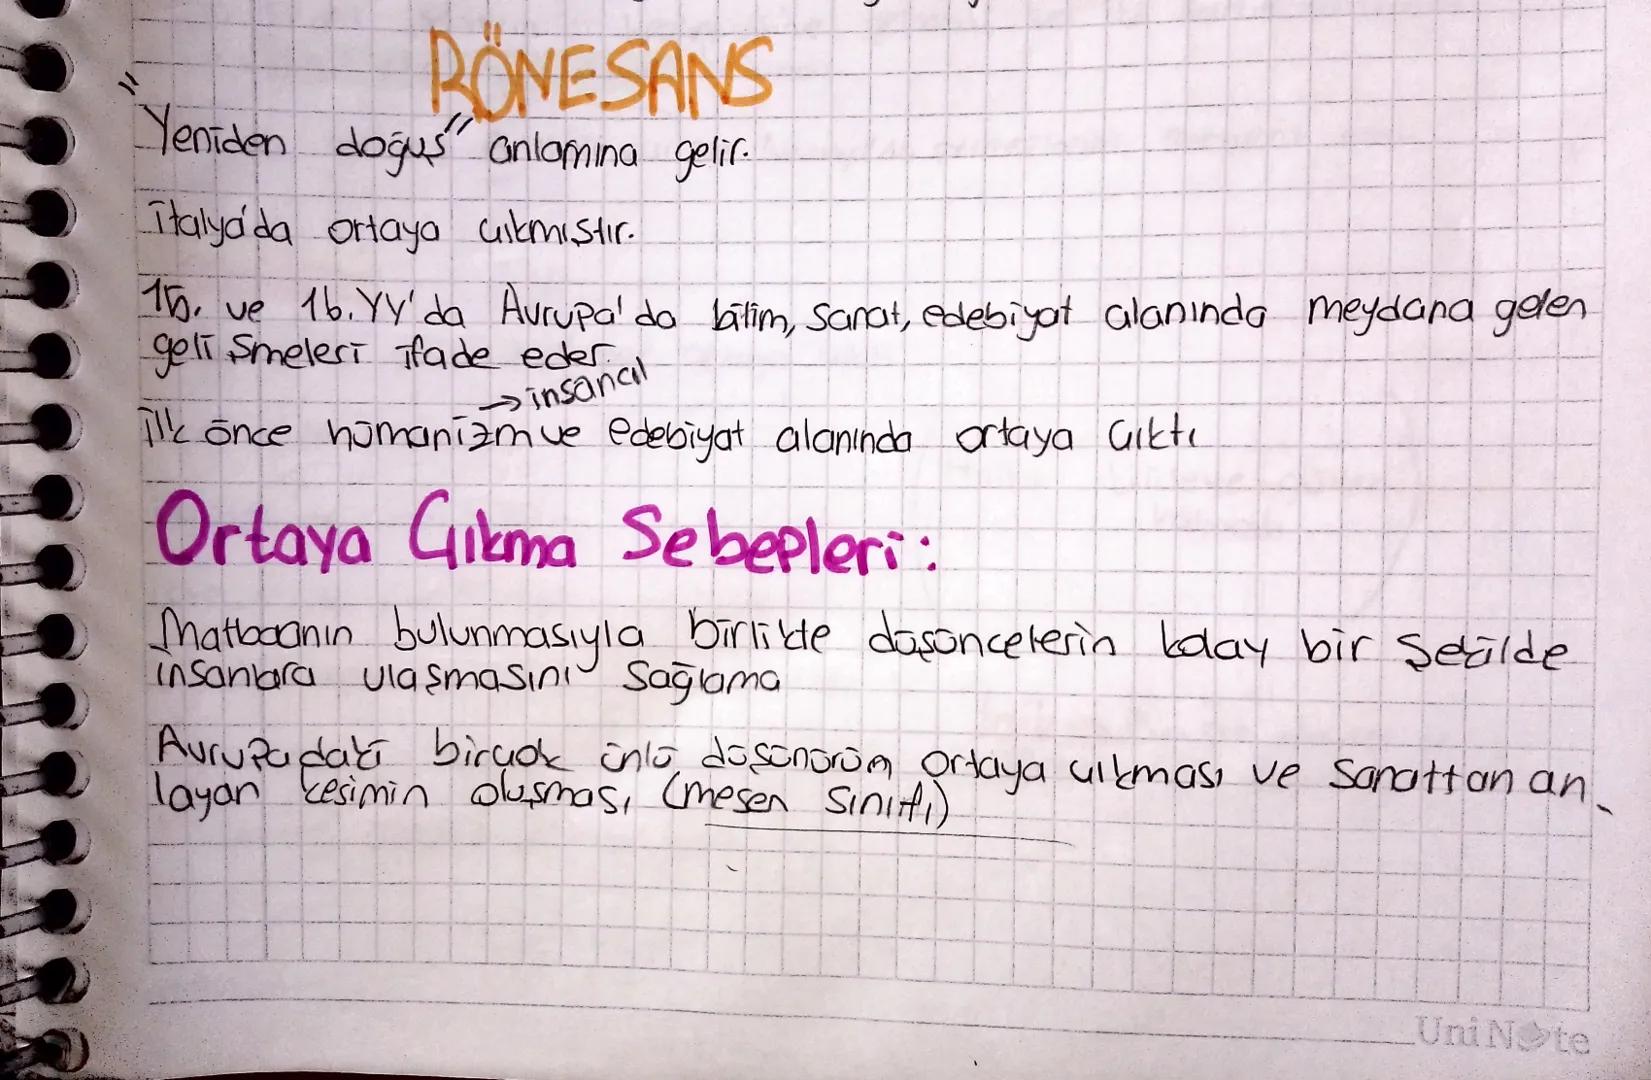 RÖNESANS
"Yeniden doğuş" anlamına gelir.
İtalya'da ortaya çıkmıştır.
15. ve 16. YY'da Avrupa'da bilim, sanat, edebiyat alanında meydana gelen
gelişmeleri ifade eder.
→ insancıl
İlk önce hümanizm ve edebiyat alanında ortaya çıktı
Ortaya Çıkma Sebepleri:
Matbaanın bulunmasıyla birlikte düşüncelerin kolay bir şekilde
insanlara ulaşmasını sağlama
Avrupadaki birçok ünlü düşünürün ortaya çıkması ve sanattan an-
layan kesimin oluşması (mesen sınıfı)
UniNote